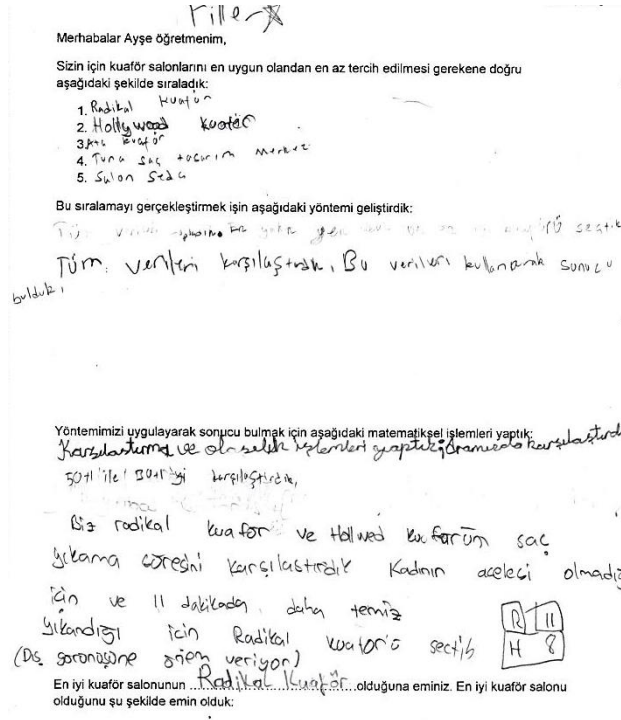 Merhabalar Ayşe öğretmenim,
Sizin için kuaför salonlarını en uygun olandan en az tercih edilmesi gerekene doğru
aşağıdaki şekilde sıraladık:
1. Radikal kuaför
2. Hollywood kuaför
3. kuaför
4. Tuna saç tasarım merkez
5. Salon Seda
Bu sıralamayı gerçekleştirmek işin aşağıdaki yöntemi geliştirdik:
seçtik
Tüm verileri karşılaştırdık. Bu verileri kullanarak sonucu
bulduk.
Yöntemimizi uygulayarak sonucu bulmak için aşağıdaki matematiksel işlemleri yaptık:
Karşılaştırma ve olasılık işlemleri yaptık; karşılaştırd
50 tl ile 30 tl'yi karşılaştırdık,
Biz radikal kuaför ve Hollwed kuaförün saç
yıkama süresini karşılaştırdık Kadının acelesi olmadığ
için ve 11 dakikada daha temiz
yıkandığı için Radikal kuaförü seçtik
R 11
H 8
(Dış görünüşüne önem veriyor)
En iyi kuaför salonunun ..Radikal Kuaför...olduğuna eminiz. En iyi kuaför salonu
olduğunu şu şekilde emin olduk: